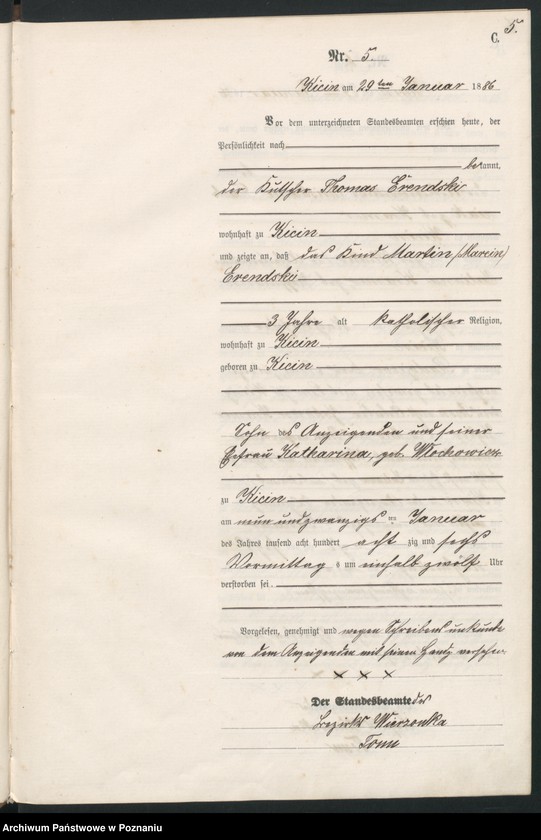 5.
C.
Nr. 5.
Kicin am 29ten Januar 1886
Vor dem unterzeichneten Standesbeamten erschien heute, der
Persönlichkeit nach
bekannt,
der Kutscher Thomas Erendski
wohnhaft zu Kicin
und zeigte an, daß das Kind Martin (Marcin)
Erendski
3 Jahre alt katholischer Religion,
wohnhaft zu Kicin
geboren zu Kicin
Sohn des Anzeigenden und seiner
Ehefrau Katharina, geb. Wlochowicz
zu Kicin
am neun und zwanzigsten Januar
des Jahres tausend acht hundert acht zig und sechs
Vormittags um einhalb zwölf Uhr
verstorben sei
Vorgelesen, genehmigt und wegen Schreibensunkunde
von dem Anzeigenden mit seinem Handz. versehen
× × ×
Der Standesbeamte des
Bezirks Wierzonka
Tonn
Archiwum Państwowe w Poznaniu